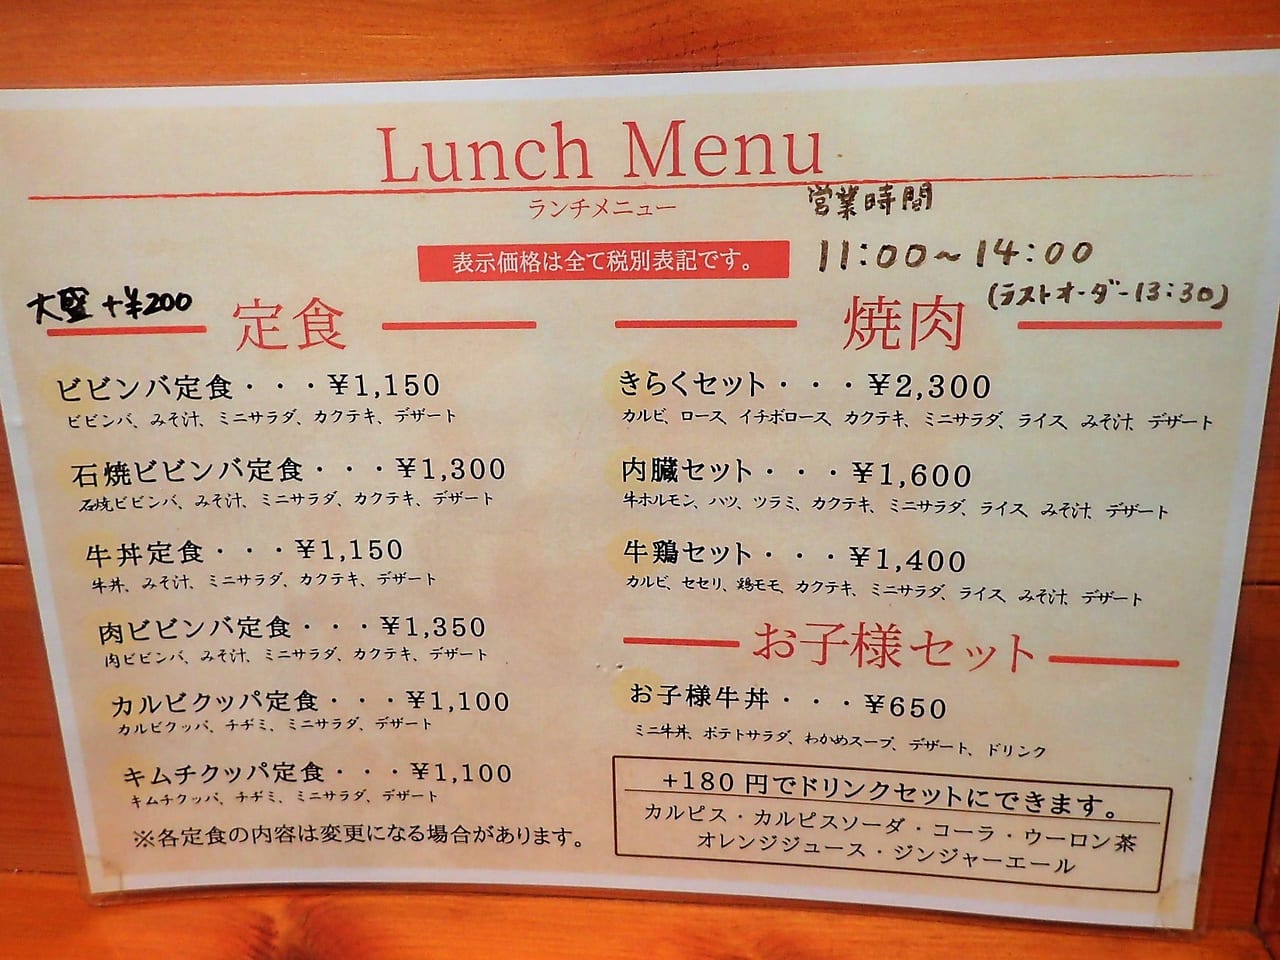 Lunch Menu
ランチメニュー
営業時間
表示価格は全て税別表記です。
11:00～14:00
(ラストオーダー13:30)
大盛 +¥200
定食
ビビンバ定食・・・¥1,150
ビビンバ、みそ汁、ミニサラダ、カクテキ、デザート
石焼ビビンバ定食・・・¥1,300
石焼ビビンバ、みそ汁、ミニサラダ、カクテキ、デザート
牛丼定食・・・¥1,150
牛丼、みそ汁、ミニサラダ、カクテキ、デザート
肉ビビンバ定食・・・¥1,350
肉ビビンバ、みそ汁、ミニサラダ、カクテキ、デザート
カルビクッパ定食・・・¥1,100
カルビクッパ、チヂミ、ミニサラダ、デザート
キムチクッパ定食・・・¥1,100
キムチクッパ、チヂミ、ミニサラダ、デザート
※各定食の内容は変更になる場合があります。
焼肉
きらくセット・・・¥2,300
カルビ、ロース、イチボロース、カクテキ、ミニサラダ、ライス、みそ汁、デザート
内臓セット・・・¥1,600
牛ホルモン、ハツ、ツラミ、カクテキ、ミニサラダ、ライス、みそ汁、デザート
牛鶏セット・・・¥1,400
カルビ、セセリ、鶏モモ、カクテキ、ミニサラダ、ライス、みそ汁、デザート
お子様セット
お子様牛丼・・・¥650
ミニ牛丼、ポテトサラダ、わかめスープ、デザート、ドリンク
+180円でドリンクセットにできます。
カルピス・カルピスソーダ・コーラ・ウーロン茶
オレンジジュース・ジンジャーエール